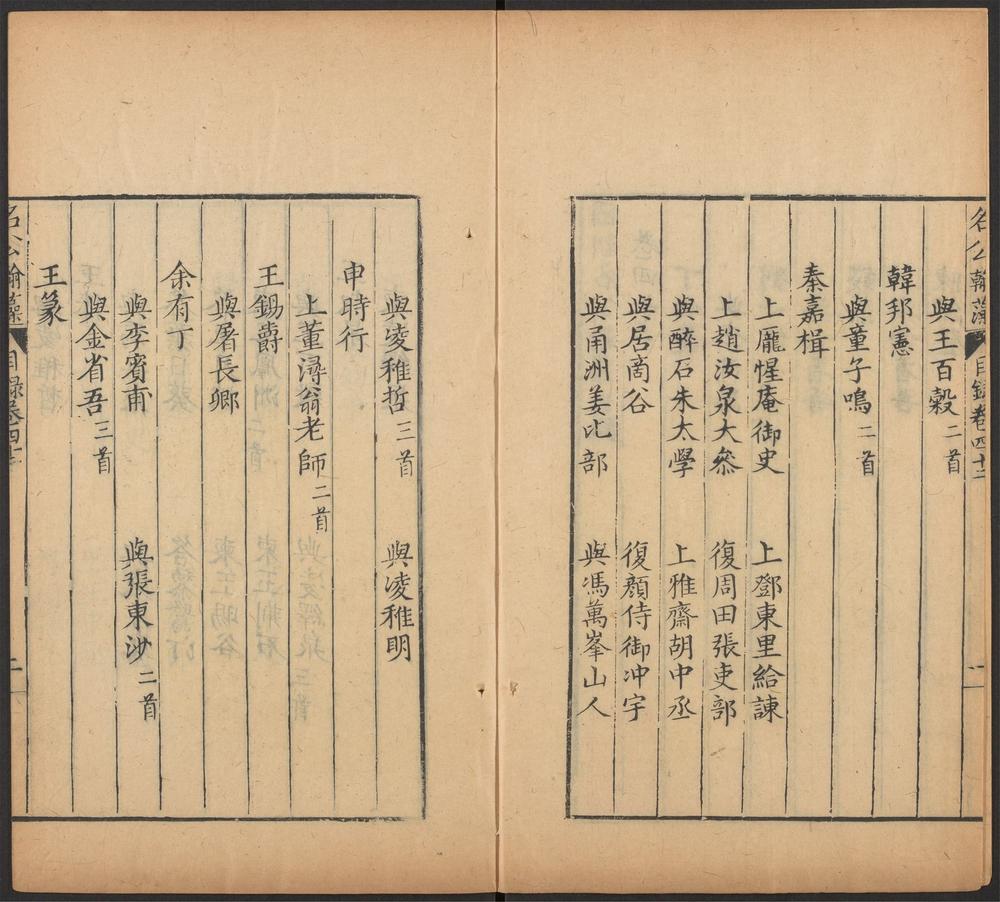 名公翰藻 目錄卷四十二 一
與王百穀二首
韓邦憲
與童子鳴二首
秦嘉楫
上龎惺庵御史 上鄧東里給諫
上趙汝泉大叅 復周田張吏部
與醉石朱太學 上雅齋胡中丞
與居啇谷 復顏侍御冲宇
與甬洲姜比部 與馮萬峯山人
與凌稚哲三首 與凌稚明
申時行
上董潯翁老師二首
王錫爵
與屠長卿
余有丁
與李賓甫 與張東沙二首
王篆
與金省吾三首
名公翰藻 目錄卷四十二 二